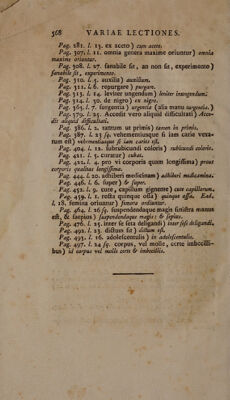 568 VARIAE LECTIONES.
Pag. 281. l. 13. ex aceto) cum aceto.
Pag. 307. l. 11. omnia genera maxime oriuntur) omnia
maxime oriuntur.
Pag. 308. l. 27. sanabile sit, an non sit, experimento)
sanabile sit, experimento.
Pag. 310. l. 5. auxilii) auxilium.
Pag. 311. l. 6. repurgare) purgare.
Pag. 313. l. 14. leviter unguendum) leniter inungendum.
Pag. 314. l. 30. de nigro) ex nigro.
Pag. 365. l. 7. surgente) urgente (alia manu surgente.)
Pag. 379. l. 25. Accessit vero aliquid difficultati) Acce-
dit aliquid difficultati.
Pag. 386. l. 2. tantum ut primis) tamen in primis.
Pag. 387. l. 23 sq. vehementiusque si iam carie vexa-
tum est) vehementiusque si iam caries est.
Pag. 404. l. 12. subrubicundi coloris) rubicundi coloris.
Pag. 421. l. 5. curatur) cubat.
Pag. 422. l. 4. pro vi corporis quam longissima) prout
corporis qualitas longissime.
Pag. 444. l. 20. adhiberi medicinam) adhiberi medicamina.
Pag. 446. l. 6. super) & super.
Pag. 452. l. 9. cute, capillum gignente) cute capillorum.
Pag. 459. l. 1. recta quinque ossa) quinque ossa. Ead.
l. 18. femina oriuntur) femora ordiuntur.
Pag. 464. l. 26 sq. suspendendaque magis sinistra manus
est, & saepius) suspendendaque magis: & sepius.
Pag. 476. l. 25. inter se ista deligandi) inter sese deligandi.
Pag. 492. l. 23. dictus sit) dictum est.
Pag. 493. l. 16. adolescentulis) in adolescentulis.
Pag. 497. l. 24 sq. corpus, vel molle, certe imbecilli-
bus) id corpus vel molle certe & imbecillis.